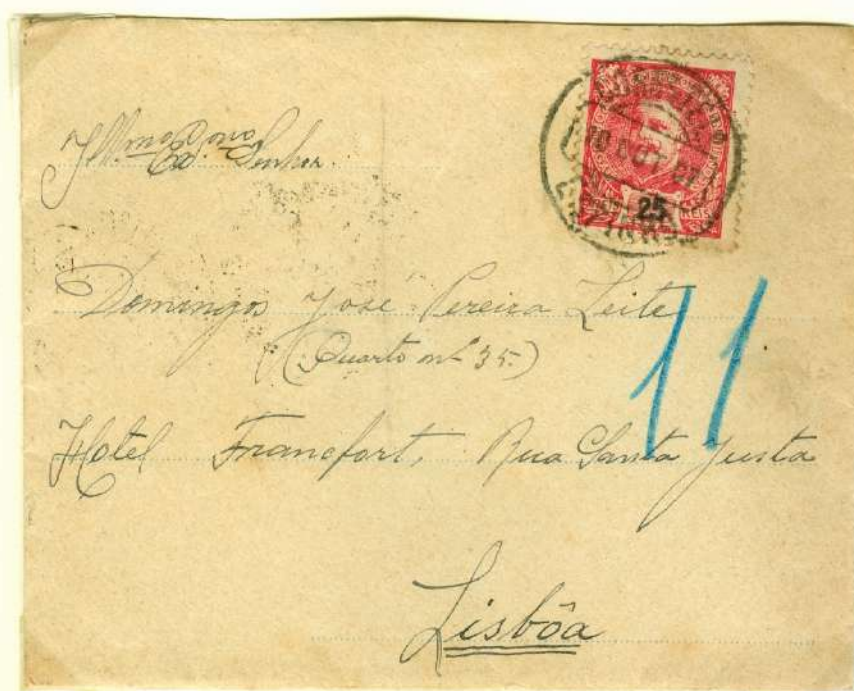 25
REIS
Illmo Exmo Senhor
Domingos José Pereira Leite
(Quarto nº 35)
11
Hotel Francfort, Rua Santa Justa
Lisbôa